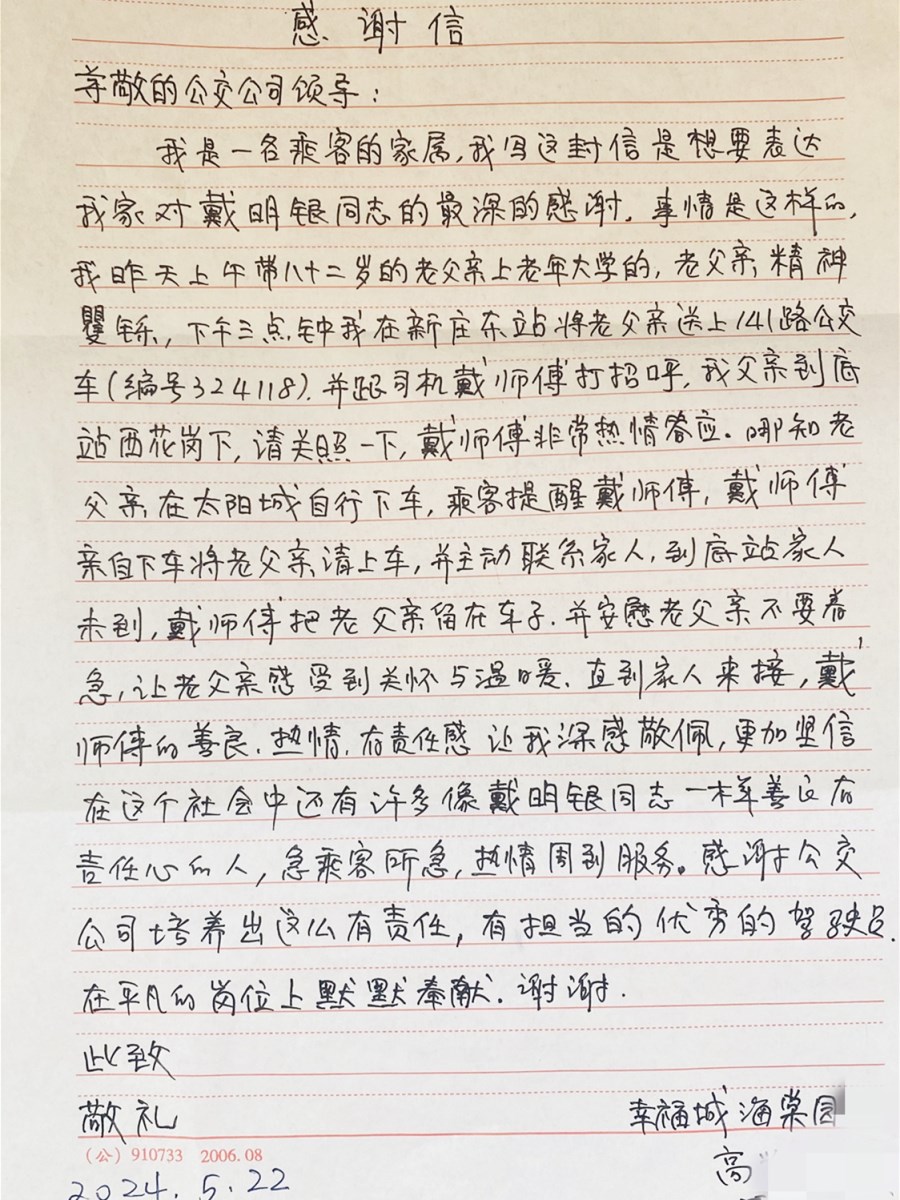 感谢信
尊敬的公交公司领导：
我是一名乘客的家属,我写这封信是想要表达
我家对戴明银同志的最深的感谢.事情是这样的,
我昨天上午带八十二岁的老父亲上老年大学的,老父亲精神
矍铄,下午三点钟我在新庄东站将老父亲送上141路公交
车(编号324118).并跟司机戴师傅打招呼,我父亲到底
站西花岗下,请关照一下,戴师傅非常热情答应.哪知老
父亲在太阳城自行下车,乘客提醒戴师傅,戴师傅
亲自下车将老父亲请上车,并主动联系家人,到底站家人
未到,戴师傅把老父亲留在车子.并安慰老父亲不要着
急,让老父亲感受到关怀与温暖.直到家人来接,戴
师傅的善良.热情.有责任感让我深感敬佩,更加坚信
在这个社会中还有许多像戴明银同志一样善良有
责任心的人,急乘客所急,热情周到服务。感谢公交
公司培养出这么有责任,有担当的优秀的驾驶员.
在平凡的岗位上默默奉献.谢谢.
此致
敬礼
幸福城海棠园
（公）910733 2006.08
高
2024.5.22